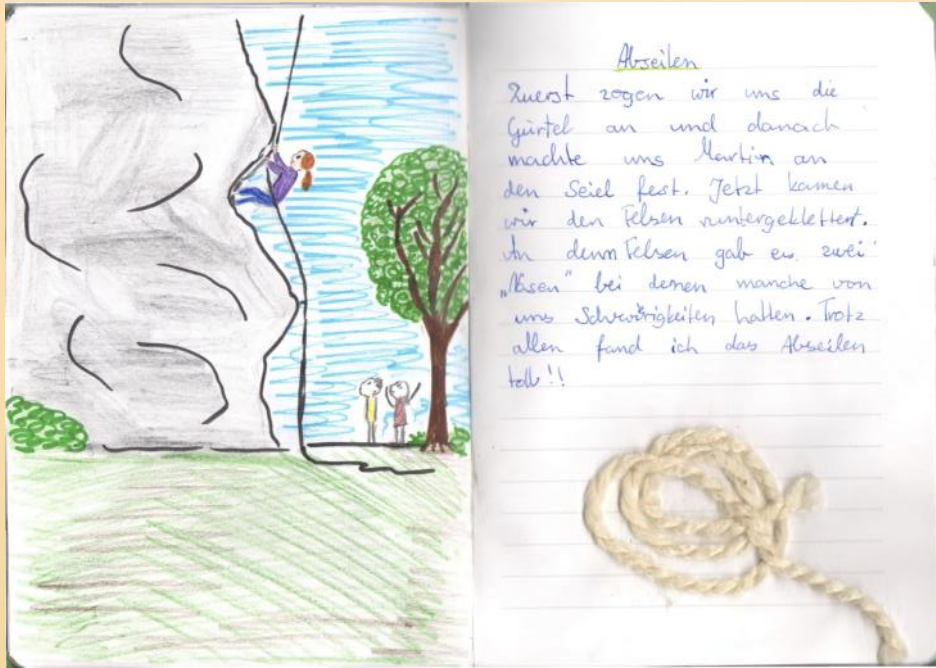 Abseilen
Zuerst zogen wir uns die
Gürtel an und danach
machte uns Martin an
den Seiel fest. Jetzt kamen
wir den Felsen runtergeklettert.
An denm Felsen gab es zwei
„Nasen" bei denen manche von
uns Schwirigkeiten hatten. Trotz
allen fand ich das Abseilen
toll!!